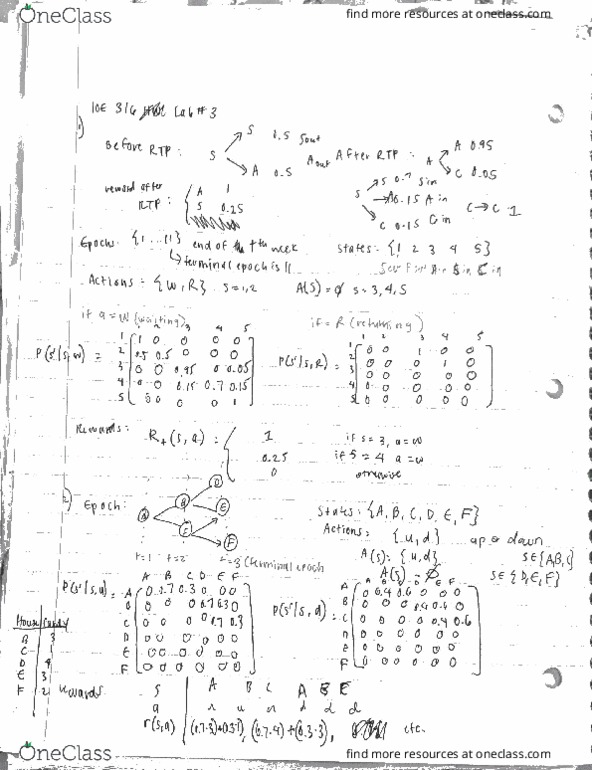 OneClass
find more resources at oneclass.com
IOE 316 Lab # 3
1)
Before RTP : S S 0.5 Sout
A 0.5 Aout
After RTP : A A 0.95
C 0.05
S S 0.7 Sin
A 0.15 A in
C 0.15 C in
C → C 1
reward after RTP : A 1
S 0.25
Epoch: {1 ... 11} end of the tth week
↳ terminal epoch is 11
States: {1 2 3 4 5}
Actions = {W, R} s = 1,2 A(S) = ∅ s = 3, 4, 5
if a = W (waiting)
if = R (returning)
1 2 3 4 5
P(s'|s, w) =
1 1 0 0 0 0
2 0.5 0.5 0 0 0
3 0 0 0.95 0 0.05
4 0 0 0.15 0.7 0.15
5 0 0 0 0 1
P(s'|s, R) =
1 2 3 4 5
1 0 0 1 0 0
2 0 0 0 1 0
3 0 0 0 0 0
4 0 0 0 0 0
5 0 0 0 0 0
Rewards: R (s, a) =
1 if s = 3, a = w
0.25 if s = 4 a = w
0 otherwise
2) Epoch:
A B C D E F
t=1 t=2 t=3 (terminal epoch
States: {A, B, C, D, E, F}
Actions: {u, d} up & down
A(s): {u, d} S∈{A,B,C}
A(s) = ∅ S∈{D,E,F}
P(s'|s, u) =
A B C D E F
A 0 0.7 0.3 0 0 0
B 0 0 0 0.7 0.3 0
C 0 0 0 0 0.7 0.3
D 0 0 0 0 0 0
E 0 0 0 0 0 0
F 0 0 0 0 0 0
P(s'|s, d) =
A B C D E F
A 0 0.4 0.6 0 0 0
B 0 0 0 0.4 0.6 0
C 0 0 0 0 0.4 0.6
D 0 0 0 0 0 0
E 0 0 0 0 0 0
F 0 0 0 0 0 0
House Candy
B 3
C 1
D 4
E 3
F 2
rewards
s A B C A B E
a u u u d d d
r(s,a) (0.7·4)+(0.3·3), etc.
OneClass
find more resources at oneclass.com